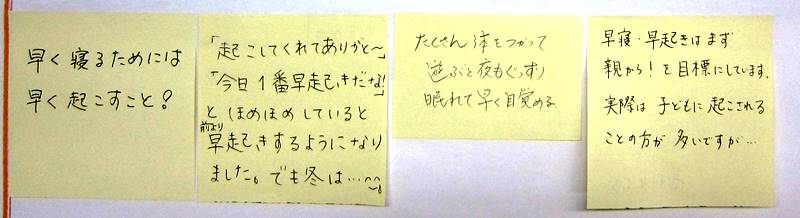 早く寝るためには
早く起こすこと?
「起こしてくれてありがと〜」
「今日1番早起きだな!」
とほめほめしていると
前より
早起きするようになり
ました。でも冬は…^^;
たくさん体をつかって
遊ぶと夜もぐっすり
眠れて早く目覚める
早寝・早起きはまず
親から!を目標にしています。
実際は子どもに起こされる
ことの方が多いですが…